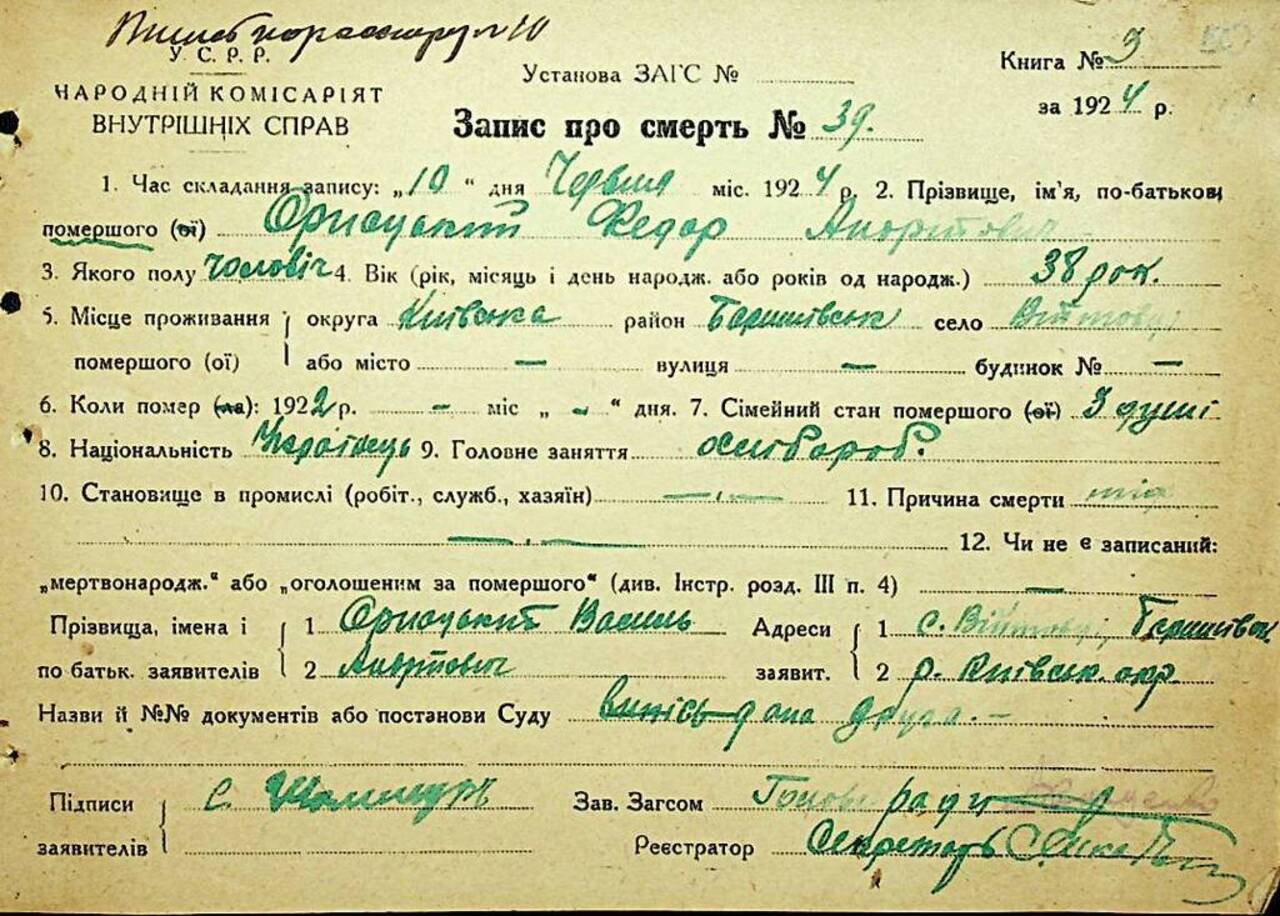 У.С.Р.Р.
НАРОДНІЙ КОМІСАРІЯТ
ВНУТРІШНІХ СПРАВ
Установа ЗАГС №
Книга № 3
за 1924 р.
Запис про смерть № 39.
1. Час складання запису: „10“ дня Червня міс. 1924 р. 2. Прізвище, ім'я, по-батькові
помершого (ої) Федор
3. Якого полу чоловіч 4. Вік (рік, місяць і день народж. або років од народж.) 38 рок.
5. Місце проживання округа Київська район Баришівськ село Війтовці
помершого (ої) або місто — вулиця — будинок № —
6. Коли помер (ла): 1922 р. - міс „ - “ дня. 7. Сімейний стан помершого (ої) 3 душі
8. Національність Українець 9. Головне заняття хлібороб.
10. Становище в промислі (робіт., служб., хазяїн) — 11. Причина смерти тіф
— 12. Чи не є записаний:
„мертвонародж.“ або „оголошеним за помершого“ (див. Інстр. розд. III п. 4) —
Прізвища, імена і 1 Василь Адреси 1 с. Війтовці Баришівськ
по батьк. заявителів 2 заявит. 2 р. Київськ. окр.
Назви й №№ документів або постанови Суду випісь дана
Підписи с. Зав. Загсом Голова ради
заявителів Реєстратор Секретарь